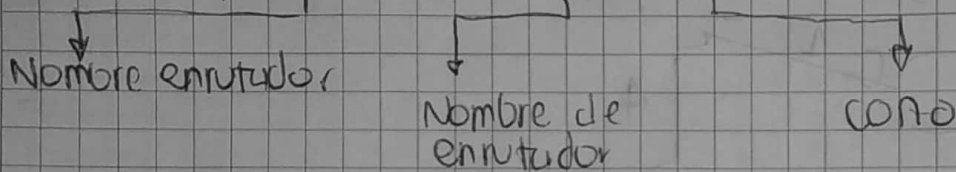 Nombre enrutador
Nombre de
enrutador
corto